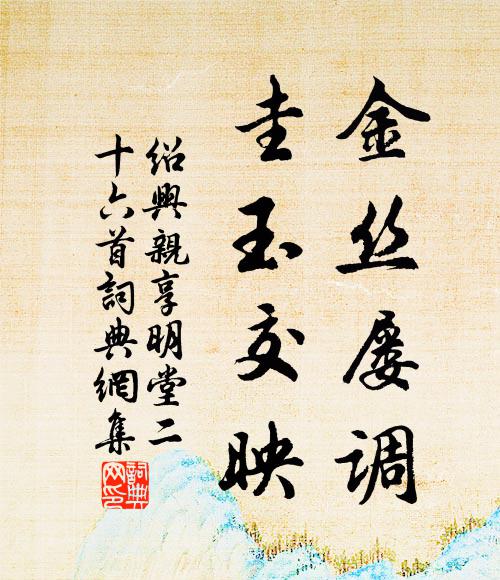 金丝屡调
圭玉交映
绍興親享明堂二
十六首詞典網集
詞典
网印